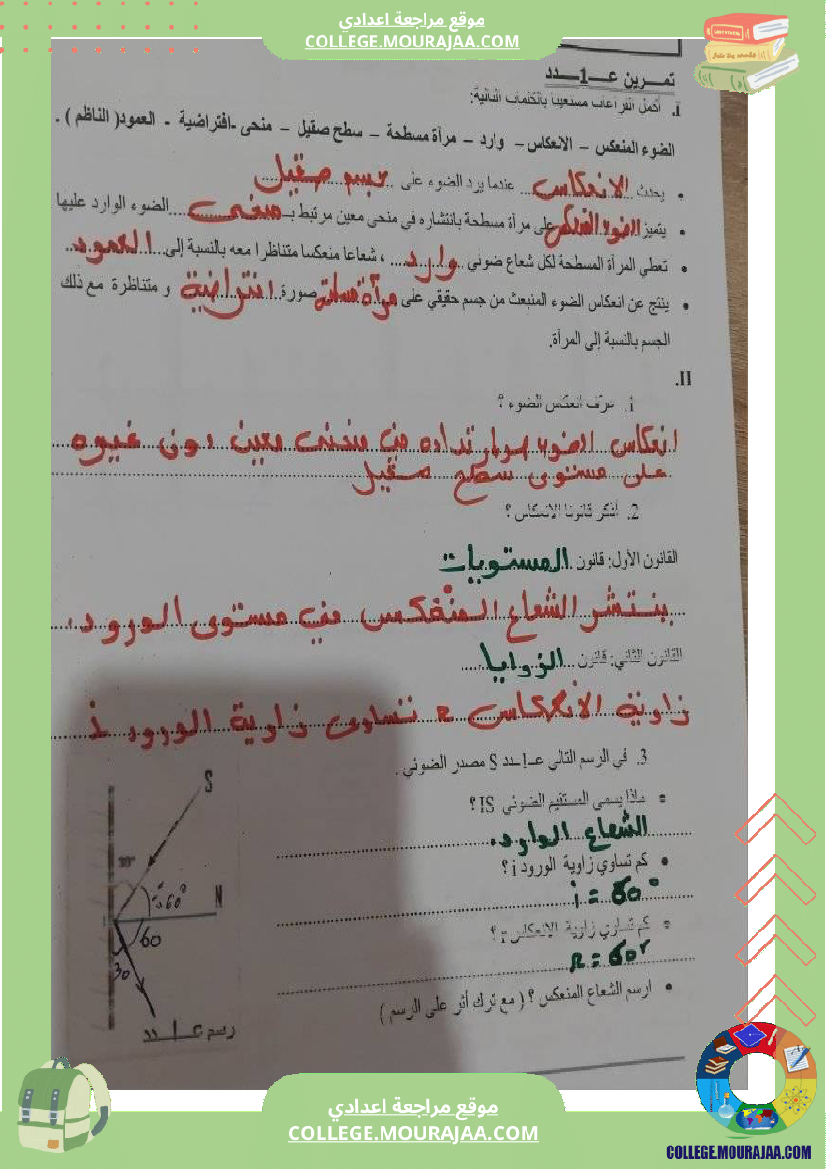 موقع مراجعة اعدادي
COLLEGE.MOURAJAA.COM
تمـــرين عــ1ــدد
I. أكمل الفراغات مستعينا بالكلمات التالية:
الضوء المنعكس – الانعكاس – وارد – مرآة مسطحة – سطح صقيل – منحى -افتراضية - العمود( الناظم ) .
يحدث الانعكاس عندما يرد الضوء على جسم صقيل
يتميز الضوء المنعكس على مرآة مسطحة بانتشاره في منحى معين مرتبط بـ منحى الضوء الوارد عليها
تعطي المرآة المسطحة لكل شعاع ضوئي وارد ، شعاعا منعكسا متناظرا معه بالنسبة إلى العمود
ينتج عن انعكاس الضوء المنبعث من جسم حقيقي على مرآة مسطحة صورة افتراضية و متناظرة مع ذلك
الجسم بالنسبة إلى المرآة.
II.
1. عرف انعكاس الضوء ؟
انعكاس الضوء هو ارتداده في منحى معين دون غيره
على مستوى سطح صقيل
2. أذكر قانونا الانعكاس ؟
القانون الأول: قانون المستويات
ينتشر الشعاع المنعكس في مستوى الورود.
القانون الثاني: قانون الزوايا
زاوية الانعكاس r تساوي زاوية الورود i
3. في الرسم التالي عــ1ــدد S مصدر الضوئي .
ماذا يسمى المستقيم الضوئي SI ؟
الشعاع الوارد.
كم تساوي زاوية الورود i ؟
i = 60°
كم تساوي زاوية الانعكاس r ؟
r = 60°
ارسم الشعاع المنعكس ؟ ( مع ترك أثر على الرسم )
S
30°
i=60°
N
60
30
رسم عــ1ــدد
موقع مراجعة اعدادي
COLLEGE.MOURAJAA.COM
COLLEGE.MOURAJAA.COM